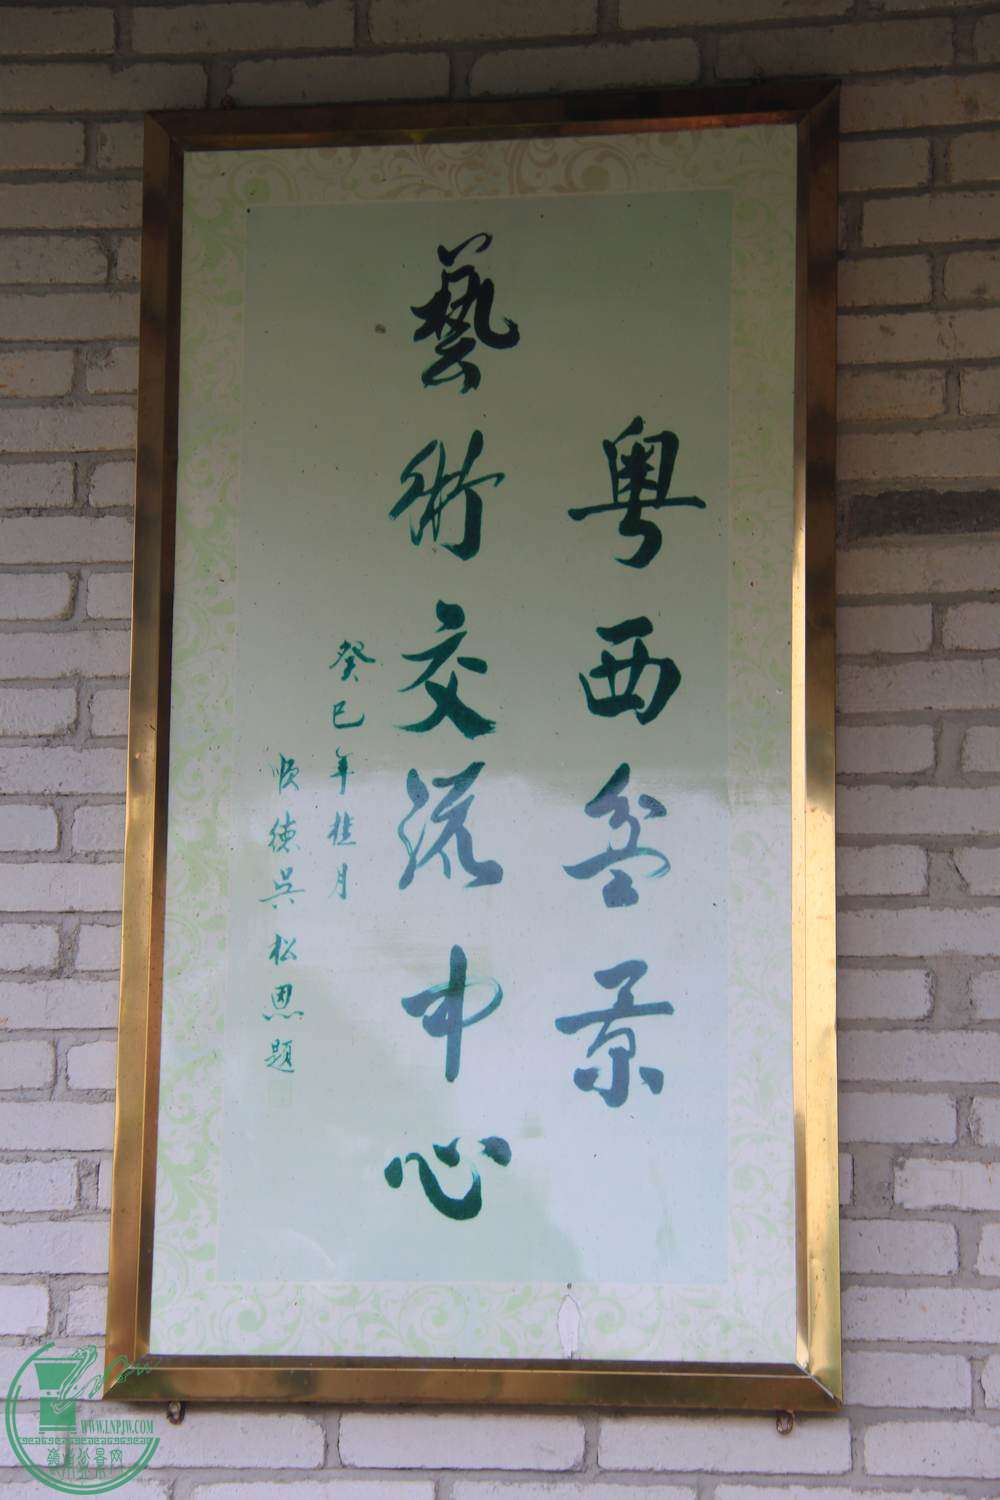 粤西盆景
藝術交流中心
癸巳年桂月
順德吳松恩題
WWW.LNPJW.COM